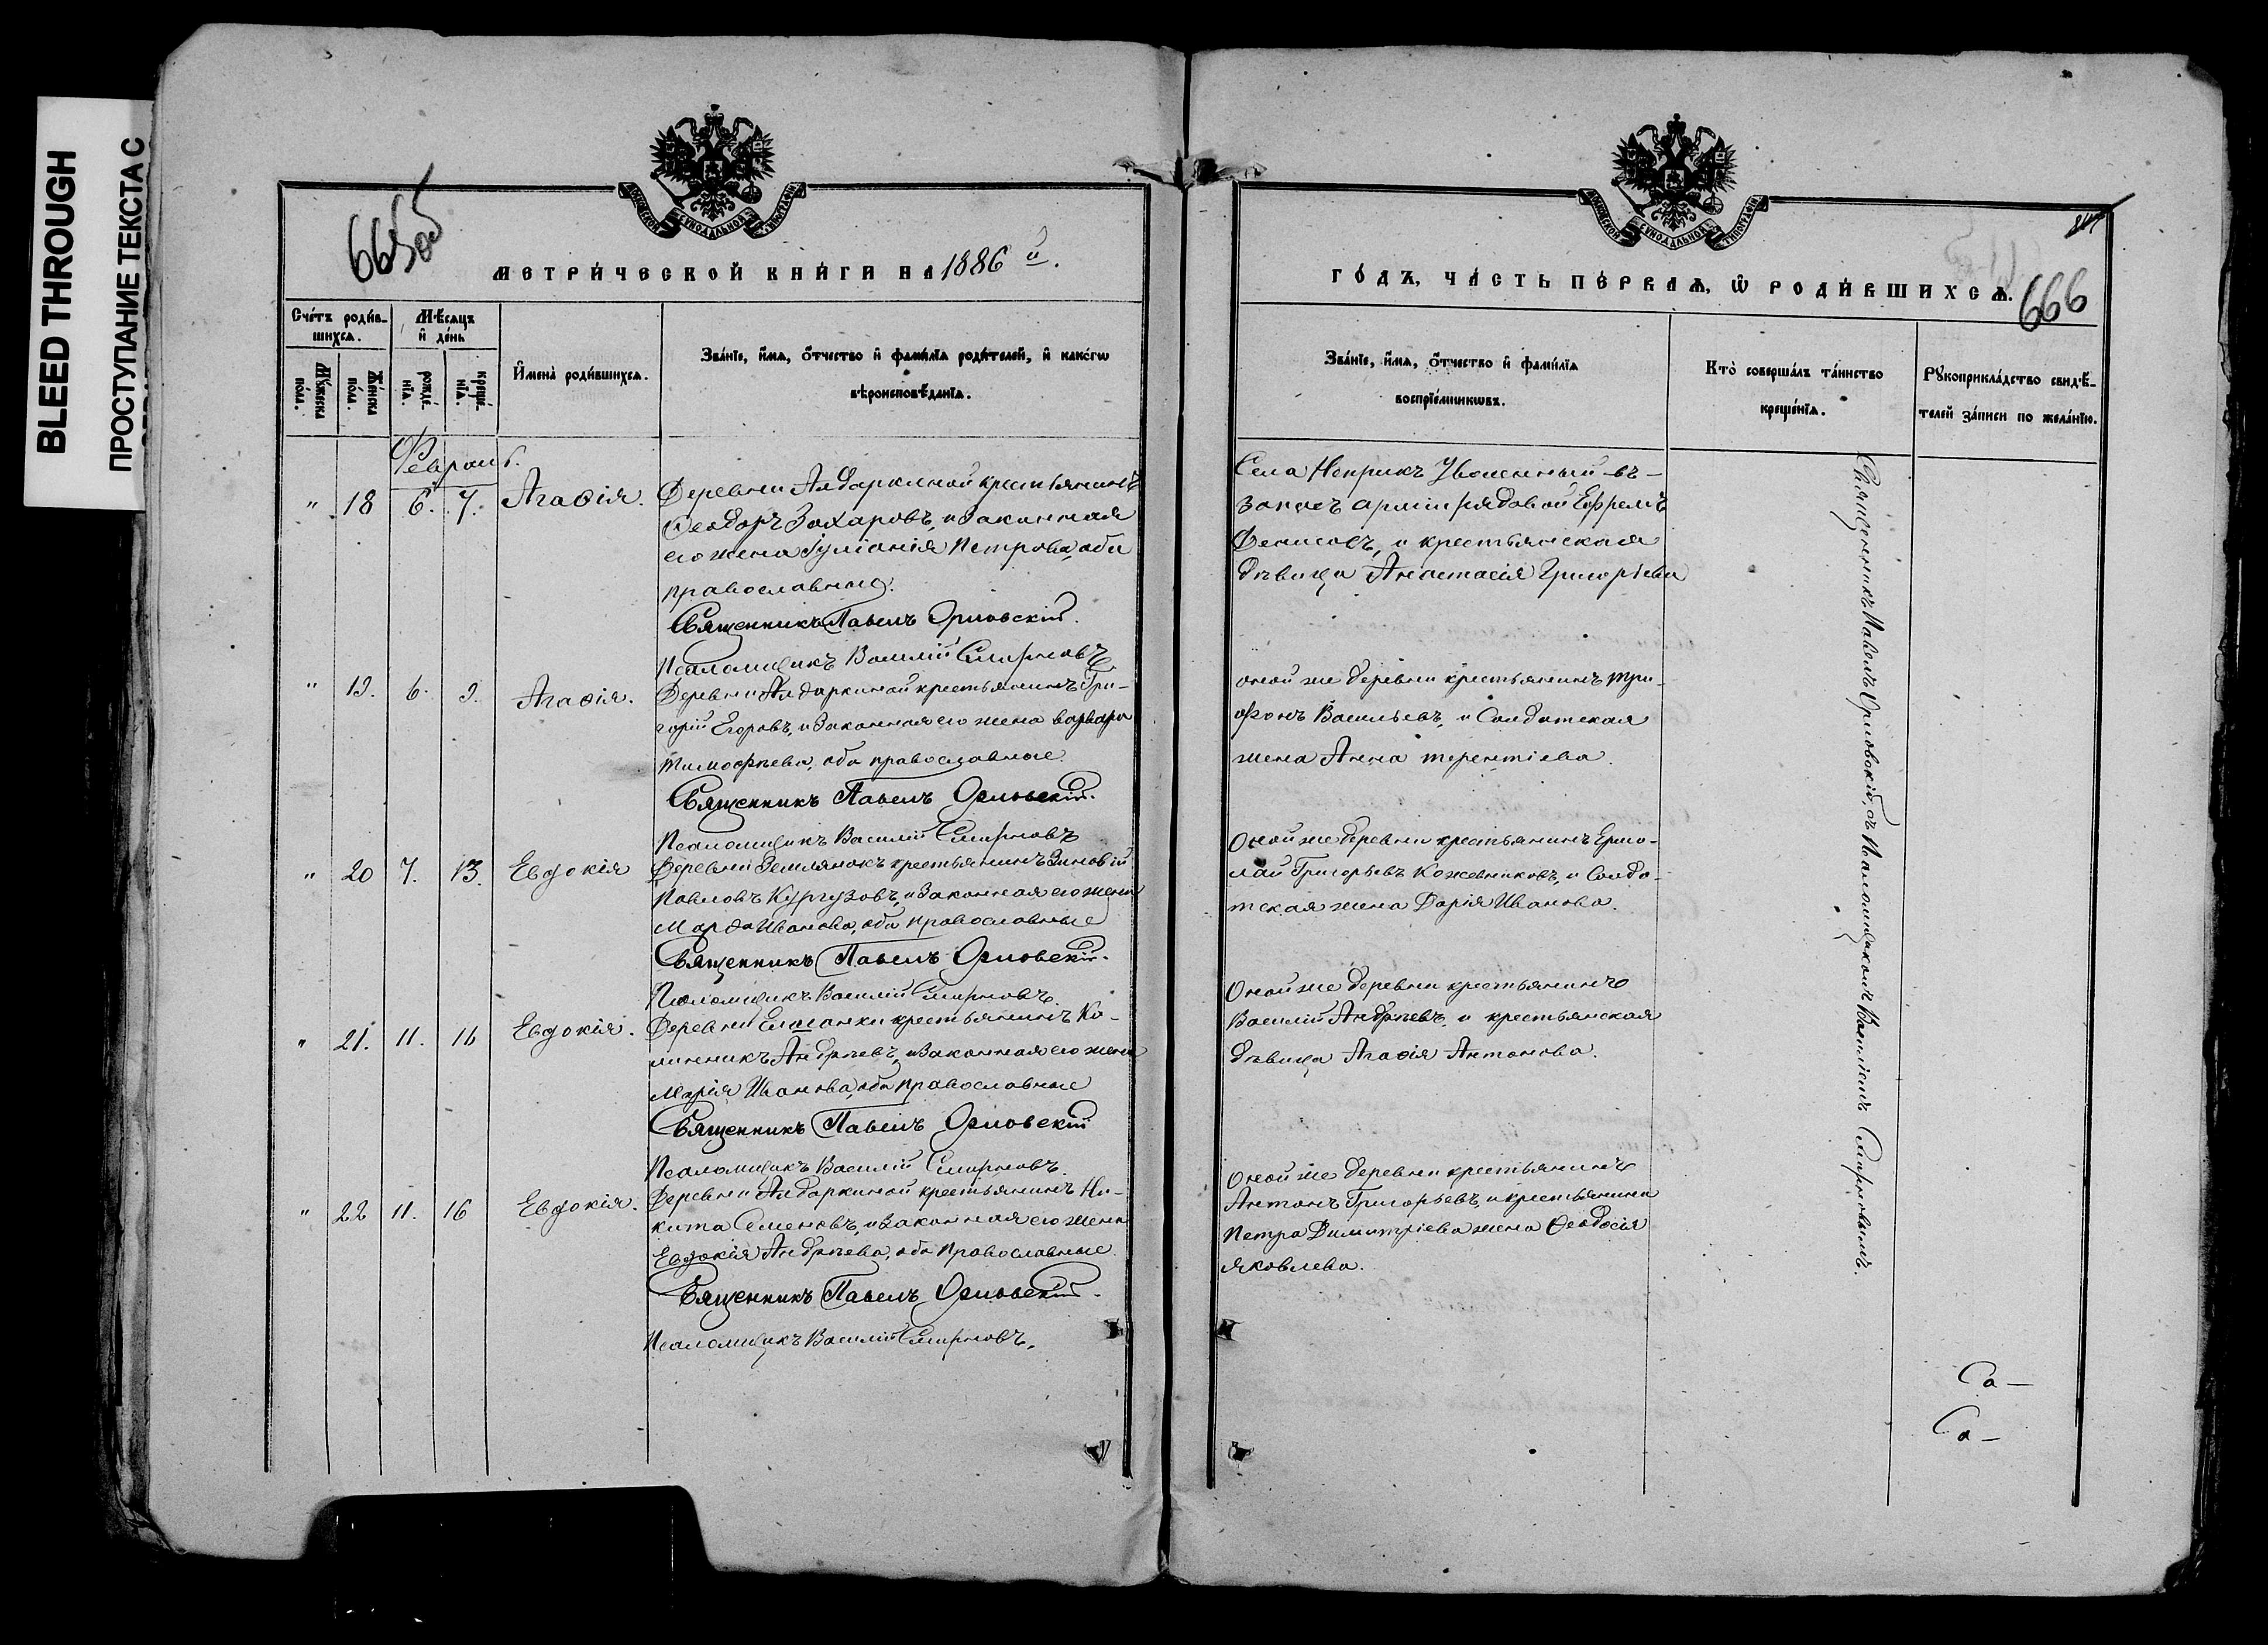 BLEED THROUGH
ПРОСТУПАНИЕ ТЕКСТА С
665об
МОСКОВСКОЙ СѴНОДАЛЬНОЙ ТИПОГРАФІИ
МЕТРИ́ЧЕСКОЙ КНИ́ГИ НА 1886 й.
Сче́тъ роди́в-
шихсѧ.
Мѣ́сѧцъ
и҆ де́нь
И҆мена̀ роди́вшихсѧ.
Зва́нїе, и҆́мѧ, ѻ҆́тчество и҆ фами́лїѧ роди́телей, и҆ како́гѡ
вѣроисповѣ́данїѧ.
Мꙋ́жеска
по́ла.
Же́нска
по́ла.
рожде́-
нїѧ.
креще́-
нїѧ.
Февраль.
" 18 6. 7. Агаѳія. Деревни Алдаркиной крестьянинъ
Ѳеодоръ Захаровъ, и законная
его жена Іуліанія Петрова, оба
православные.
Священникъ Павелъ Орловскій.
Псаломщикъ Василій Смирновъ.
" 19. 6. 9. Агаѳія. Деревни Алдаркиной крестьянинъ Гри-
горій Егоровъ, и законная его жена Варвара
Тимофѣева, оба православные.
Священникъ Павелъ Орловскій.
Псаломщикъ Василій Смирновъ
" 20 7. 13. Евдокія Деревни Землянокъ крестьянинъ Зиновій
Павловъ Кургузовъ, и законная его жена
Марѳа Иванова, оба православные
Священникъ Павелъ Орловскій.
Псаломщикъ Василій Смирновъ.
" 21. 11. 16 Евдокія. Деревни Елшанки крестьянинъ Ка-
линникъ Андрѣевъ, и законная его жена
Марія Иванова, оба православные
Священникъ Павелъ Орловскій
Псаломщикъ Василій Смирновъ.
" 22 11. 16 Евдокія. Деревни Алдаркиной крестьянинъ Ни-
кита Семеновъ, и законная его жена
Евдокія Андрѣева, оба православные
Священникъ Павелъ Орловскій.
Псаломщикъ Василій Смирновъ.
МОСКОВСКОЙ СѴНОДАЛЬНОЙ ТИПОГРАФІИ
ГО́ДЪ, ЧА́СТЬ ПЕ́РВАѦ, Ѡ҆ РОДИ́ВШИХСѦ.
666
Зва́нїе, и҆́мѧ, ѻ҆́тчество и҆ фами́лїѧ
воспрїе́мникѡвъ.
Кто̀ соверша́лъ та́инство
креще́нїѧ.
Рꙋкоприкла́дство свидѣ́-
телей за́писи по жела́нїю.
Села Неприкъ Уволенный въ
запасъ арміи рядовой Ефремъ
Денисовъ, и крестьянская
дѣвица Анастасія Григорьева
оной же деревни крестьянинъ Три-
фонъ Васильевъ, и Солдатская
жена Анна Терентіева.
Оной же деревни крестьянинъ Ермо-
лай Григорьевъ Кожевниковъ, и Солда-
тская жена Дарія Иванова.
Оной же деревни крестьянинъ
Василій Андрѣевъ, и крестьянская
дѣвица Агаѳія Антонова.
Оной же деревни крестьянинъ
Антонъ Григорьевъ, и крестьянина
Петра Димитріева жена Ѳеодосія
Яковлева.
Священникъ Павелъ Орловскій, съ Псаломщикомъ Василіемъ Смирновымъ.
Са —
Са —